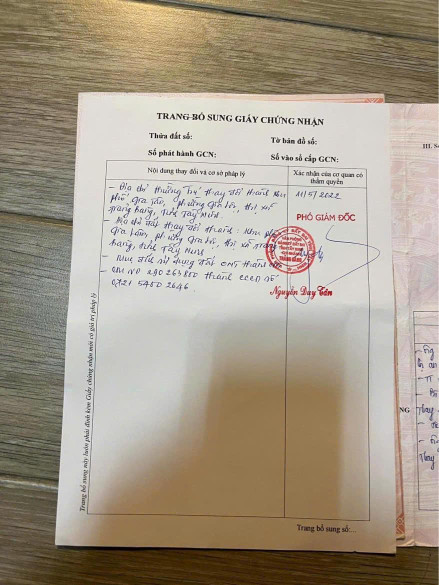 TRANG BỔ SUNG GIẤY CHỨNG NHẬN
Thửa đất số:
Tờ bản đồ số:
Số phát hành GCN:
Số vào sổ cấp GCN:
Nội dung thay đổi và cơ sở pháp lý
Xác nhận của cơ quan có
thẩm quyền
- Địa chỉ thường trú thay đổi thành khu
phố, Gia Tân, phường Gia Lộc, thị xã
Trảng Bàng, tỉnh Tây Ninh.
- Địa chỉ đất thay đổi thành: Khu phố
Gia Lâm, phường Gia Lộc, thị xã Trảng
Bàng, tỉnh Tây Ninh
- Mục đích sử dụng đất ONT thành
CMND 290263800 thành CCCD số
11/5/2022
PHÓ GIÁM ĐỐC
Nguyễn Duy Tân
Trang bổ sung này luôn phải đính kèm Giấy chứng nhận mới có giá trị pháp lý
Trang bổ sung số:...
III. S